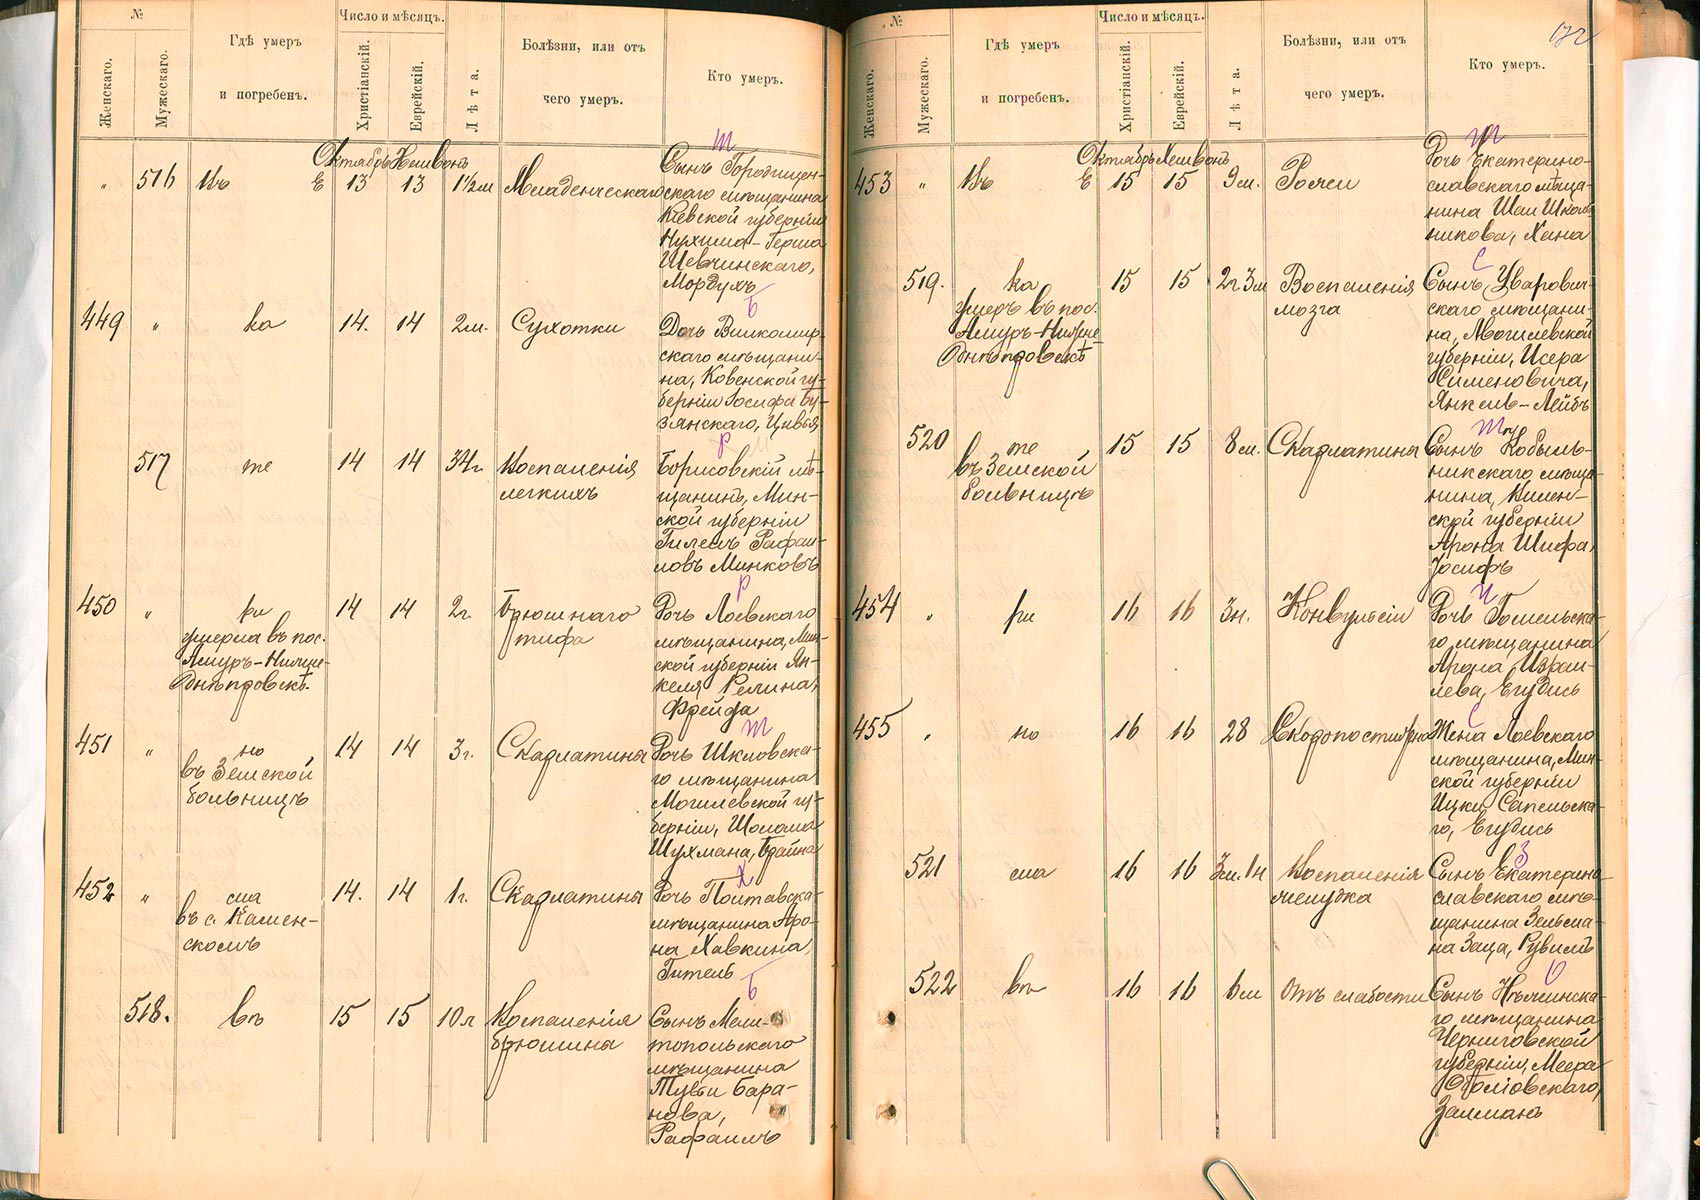 №
Женскаго.
Мужескаго.
Гдѣ умеръ
и погребенъ.
Число и мѣсяцъ.
Христіанскій.
Еврейскій.
Лѣта.
Болѣзни, или отъ
чего умеръ.
Кто умеръ.
Октябрь Хешвонъ
" 516 Е 13 13 1½м Младенческаго
Сынъ Городищен-
скаго мѣщанина
Кіевской губерніи
Нухима-Герша
Шевчинскаго,
Мордухъ
449 " ка 14. 14 2м. Сухотки
Дочь Вилкомир-
скаго мѣщани-
на, Ковенской гу-
берніи Іосифа Бу-
зянскаго, Цивья
517 те 14 14 34г. Воспаленія
легкихъ
Борисовскій мѣ-
щанинъ, Мин-
ской губерніи
Гилель Рафаи-
ловъ Минковъ
450 " ри 14 14 2г. Брюшнаго
тифа
умерла въ пос.
Амуръ-Нижне-
Днѣпровскѣ.
Дочь Лоевскаго
мѣщанина, Мин-
ской губерніи Ян-
келя Релина,
Фрейда
451 " но 14 14 3г. Скарлатина
въ Земской
больницѣ
Дочь Шкловска-
го мѣщанина
Могилевской гу-
берніи, Шолома
Шухмана, Брайна
452 " сма 14. 14 1г. Скарлатина
въ с. Камен-
скомъ
Дочь Полтавска-
мѣщанина Аро-
на Хавкина,
Гитель
518. вѣ 15 15 10л Воспаленія
брюшина
Сынъ Мели-
топольскаго
мѣщанина
Тувіи Бара-
нова,
Рафаилъ
№
Женскаго.
Мужескаго.
Гдѣ умеръ
и погребенъ.
Число и мѣсяцъ.
Христіанскій.
Еврейскій.
Лѣта.
Болѣзни, или отъ
чего умеръ.
Кто умеръ.
Октябрь Хешвонъ
453 " Е 15 15 9м. Рожи
Дочь Екатерино-
славскаго мѣща-
нина Шаи Школь-
никова, Хана
519. ка 15 15 2г 3м Воспаленія
мозга
умеръ въ пос.
Амуръ-Нижне
Днѣпровскѣ
Сынъ Уварович-
скаго мѣщани-
на, Могилевской
губерніи, Исера
Сименовича,
Янкель-Лейбъ
520 те 15 15 8м. Скарлатина
въ Земской
больницѣ
Сынъ Кобыль-
никскаго мѣща-
нина, Вилен-
ской губерніи
Арона Шифа,
Іосифъ
454 " ри 16 16 3н. Конвульсіи
Дочь Гомельска-
го мѣщанина
Арона Израи-
лева, Егудись
455 " но 16 16 28
Жена Лоевскаго
мѣщанина, Мин-
ской губерніи
Ицки Сапельска-
го, Егудись
521 сма 16 16 3м. 1н Воспаленія
желудка
Сынъ Екатерино-
славскаго мѣ-
щанина Зельма-
на Заца, Рувимъ
522 вѣ 16 16 6м Отъ слабости
Сынъ Нѣжинска-
го мѣщанина
Черниговской
губерніи, Меера
Залманъ